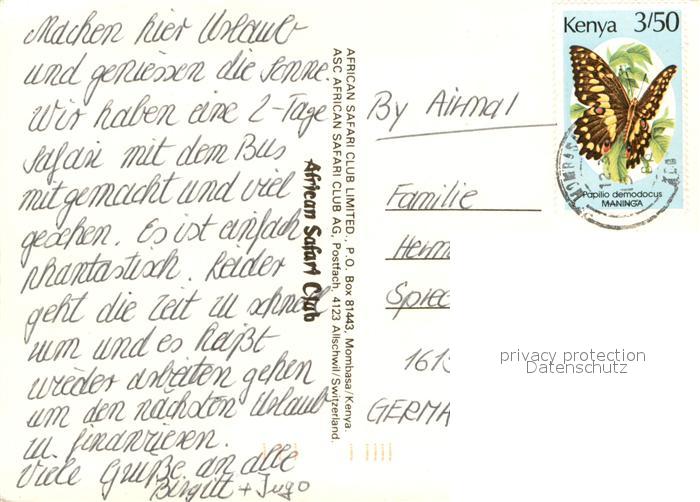 Machen hier Urlaub
und geniessen die Sonne.
Wir haben eine 2-Tage
Safari mit dem Bus
mitgemacht und viel
gesehen. Es ist einfach
phantastisch. Leider
geht die Zeit zu schnell
um und es heißt
wieder arbeiten gehen
um den nächsten Urlaub
zu finanziesen.
Viele Grüße an alle
Birgitt + Ingo
African Safari Club
AFRICAN SAFARI CLUB LIMITED., P.O. Box 81443, Mombasa/Kenya.
ASC AFRICAN SAFARI CLUB AG, Postfach, 4123 Allschwil/Switzerland.
Kenya 3/50
Papilio demodocus
MANINGA
By Airmal
Familie
Herm
Spiec
161
GERMA
privacy protection
Datenschutz